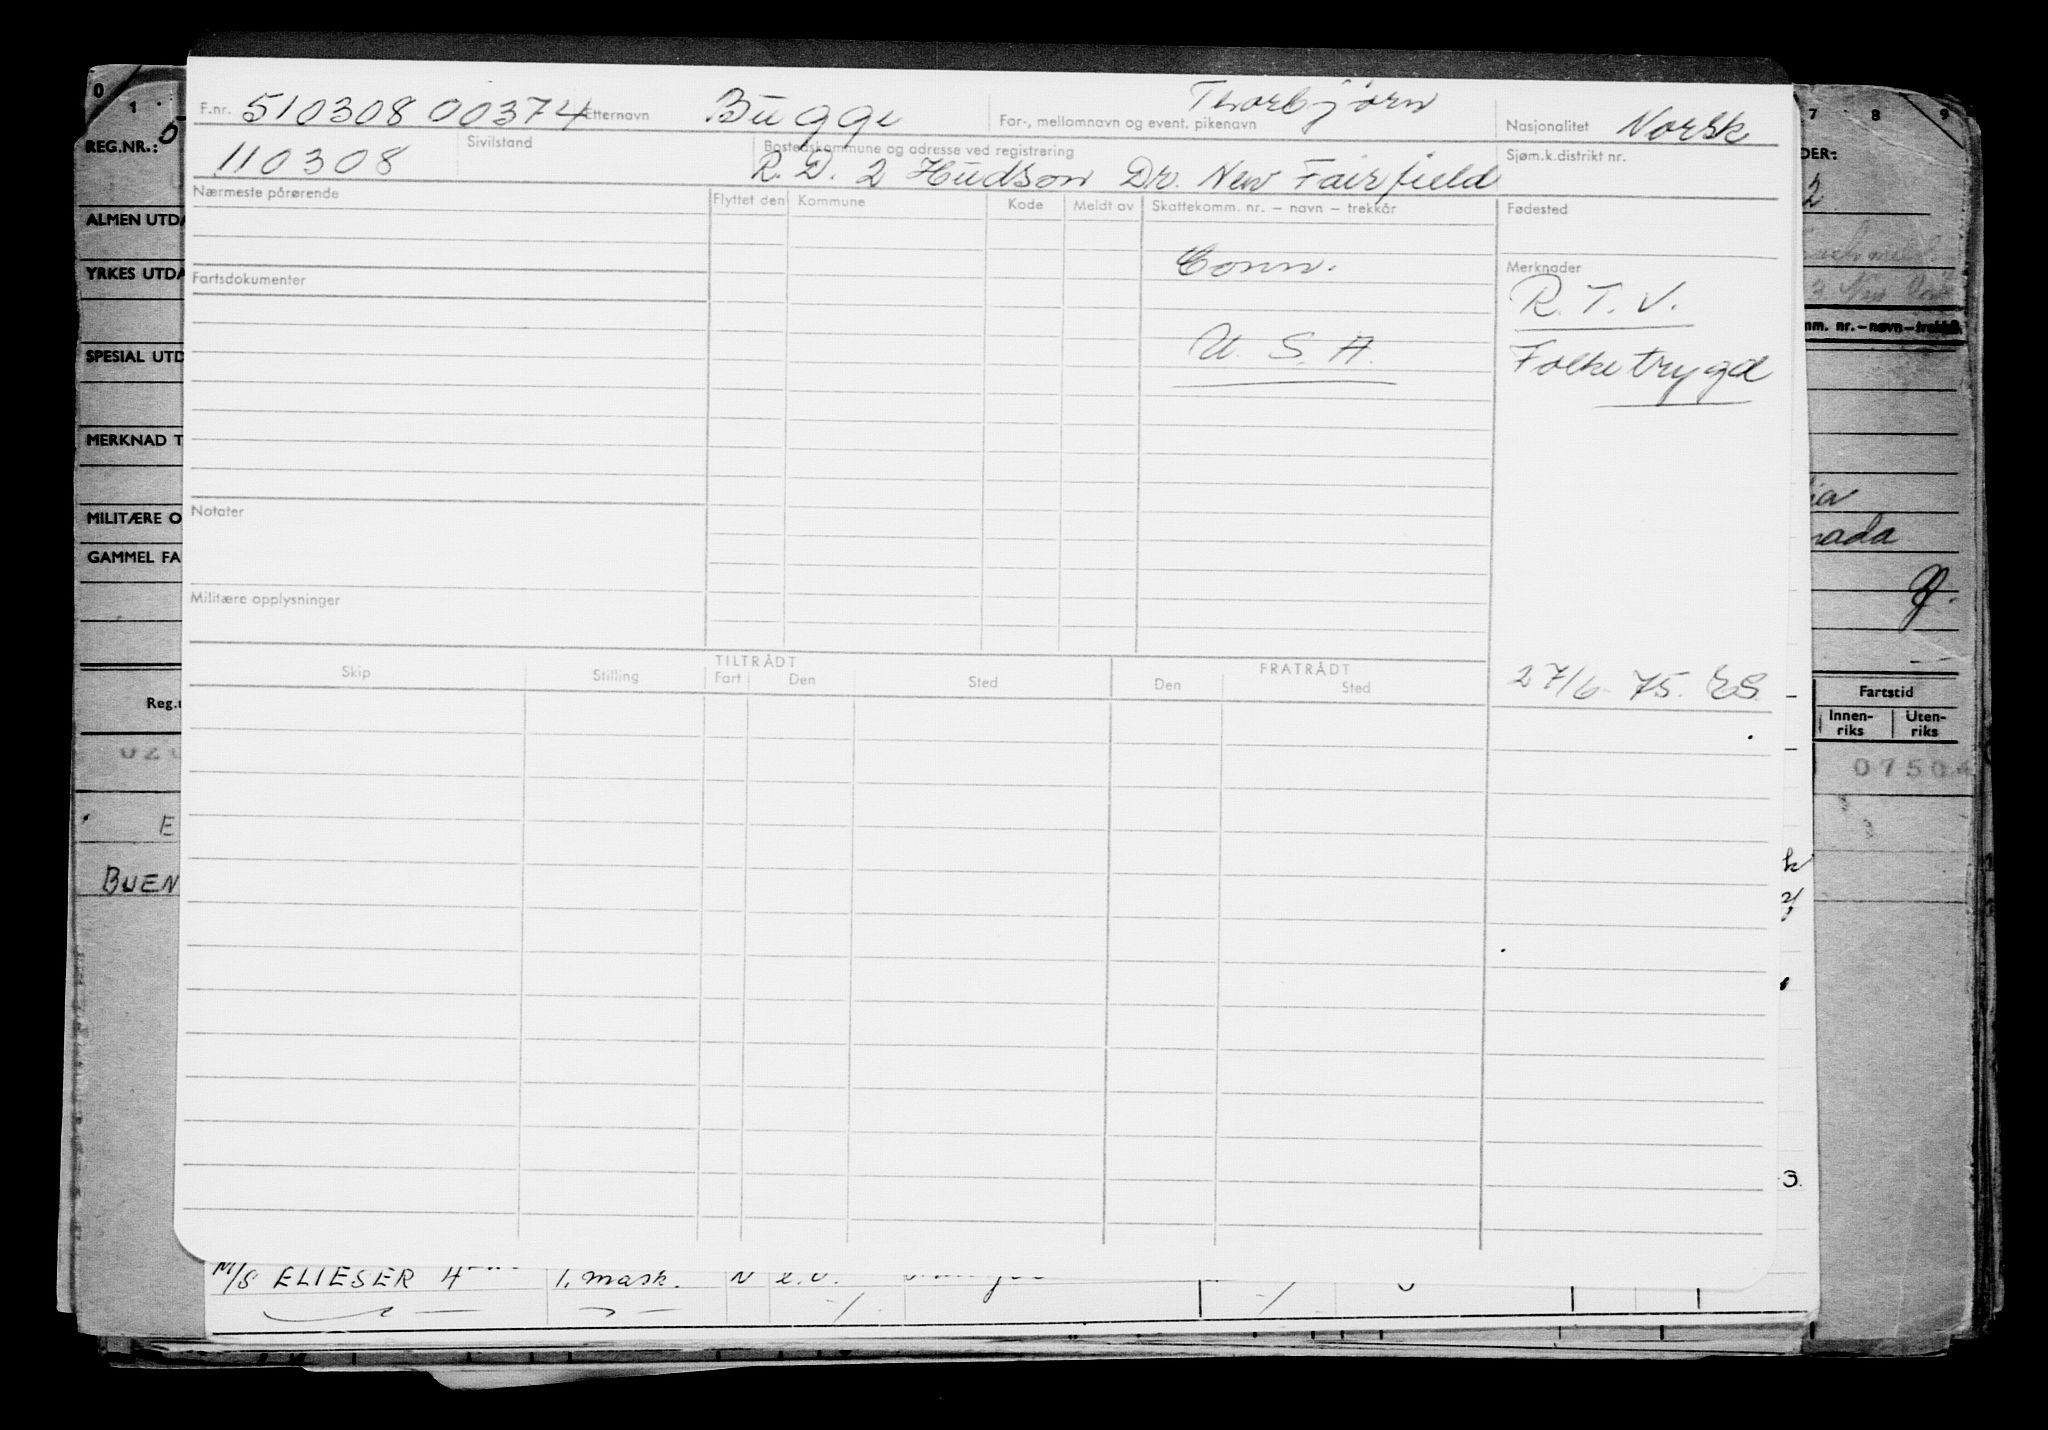 F.nr. 510308 00374 Etternavn Bugge For-, mellomnavn og event. pikenavn Thorbjörn Nasjonalitet Norsk
110308 Sivilstand Bostedskommune og adresse ved registrering R. D. 2 Hudson Dr. New Fairfield Sjøm.k.distrikt nr.
Nærmeste pårørende Flyttet den Kommune Kode Meldt av Skattekomm. nr. – navn – trekkår Fødested
Conn.
Fartsdokumenter Merknader
R. T. V.
U. S. A.
Folketrygd
Notater
Militære opplysninger
TILTRÅDT FRATRÅDT
Skip Stilling Fart Den Sted Den Sted
27/6- 75. ES.
0 1 7 8 9
REG.NR.:
ALMEN UTDA
YRKES UTDA
SPESIAL UTD
MERKNAD T
MILITÆRE O
GAMMEL FA
Reg.t
BUEN
DER:
2
mm. nr.–navn–trekkår
nada
Fartstid
Innen-riks Uten-riks
0750
3.
M/S ELIESER 1. mask. N